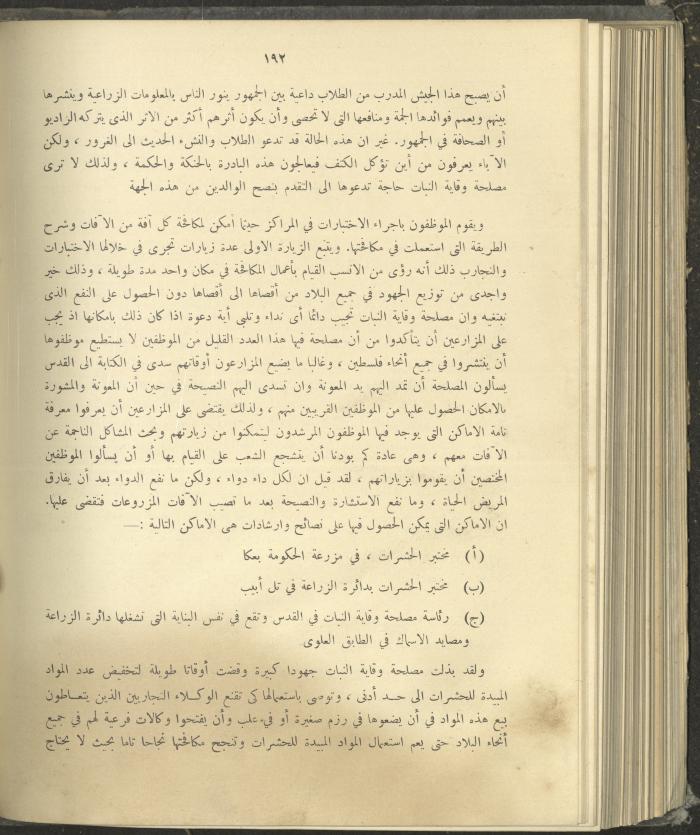 ١٩٢
أن يصبح هذا الجيش المدرب من الطلاب داعية بين الجمهور ينور الناس بالمعلومات الزراعية وينشرها
بينهم ويعمم فوائدها الجمة ومنافعها التى لا تحصى وأن يكون أثرهم أكثر من الاثر الذى يتركه الراديو
أو الصحافة في الجمهور. غير ان هذه الحالة قد تدعو الطلاب والنشء الحديث الى الغرور ، ولكن
الآباء يعرفون من أين تؤكل الكتف فيعالجون هذه البادرة بالحنكة والحكمة ، ولذلك لا ترى
مصلحة وقاية النبات حاجة تدعوها الى التقدم بنصح الوالدين من هذه الجهة
ويقوم الموظفون باجراء الاختبارات في المراكز حيثما أمكن لمكافحة كل آفة من الآفات وشرح
الطريقة التى استعملت في مكافحتها. ويتبع الزيارة الاولى عدة زيارات تجرى في خلالها الاختبارات
والتجارب ذلك أنه رؤى من الانسب القيام بأعمال المكافحة في مكان واحد مدة طويلة ، وذلك خير
واجدى من توزيع الجهود في جميع البلاد من أقصاها الى أقصاها دون الحصول على النفع الذى
نبتغيه وان مصلحة وقاية النبات تجيب دائما أى نداء وتلبى أية دعوة اذا كان ذلك بامكانها اذ يجب
على المزارعين أن يتأكدوا من أن مصلحة فيها هذا العدد القليل من الموظفين لا يستطيع موظفوها
أن ينتشروا في جميع أنحاء فلسطين ، وغالبا ما يضيع المزارعون أوقاتهم سدى في الكتابة الى القدس
يسألون المصلحة أن تمد اليهم يد المعونة وان تسدى اليهم النصيحة في حين أن المعونة والمشورة
بالامكان الحصول عليها من الموظفين القريبين منهم ، ولذلك يقتضى على المزارعين أن يعرفوا معرفة
تامة الاماكن التى يوجد فيها الموظفون المرشدون ليتمكنوا من زيارتهم وبحث المشاكل الناجمة عن
الآفات معهم ، وهى عادة كم بودنا أن يتشجع الشعب على القيام بها أو أن يسألوا الموظفين
المختصين أن يقوموا بزياراتهم ، لقد قيل ان لكل داء دواء ، ولكن ما نفع الدواء بعد أن يفارق
المريض الحياة ، وما نفع الاستشارة والنصيحة بعد ما تصيب الآفات المزروعات فتقضى عليها.
ان الاماكن التى يمكن الحصول فيها على نصائح وارشادات هى الاماكن التالية :—
(أ) مختبر الحشرات ، في مزرعة الحكومة بعكا
(ب) مختبر الحشرات بدائرة الزراعة في تل أبيب
(ج) رئاسة مصلحة وقاية النبات في القدس وتقع في نفس البناية التى تشغلها دائرة الزراعة
ومصايد الاسماك في الطابق العلوى
ولقد بذلت مصلحة وقاية النبات جهودا كبيرة وقضت أوقاتا طويلة لتخفيض عدد المواد
المبيدة للحشرات الى حد أدنى ، وتوصى باستعمالها كى تقنع الوكلاء التجاريين الذين يتعاطون
بيع هذه المواد في أن يضعوها في رزم صغيرة أو في علب وأن يفتحوا وكالات فرعية لهم في جميع
أنحاء البلاد حتى يعم استعمال المواد المبيدة للحشرات وتنجح مكافحتها نجاحا تاما بحيث لا يحتاج